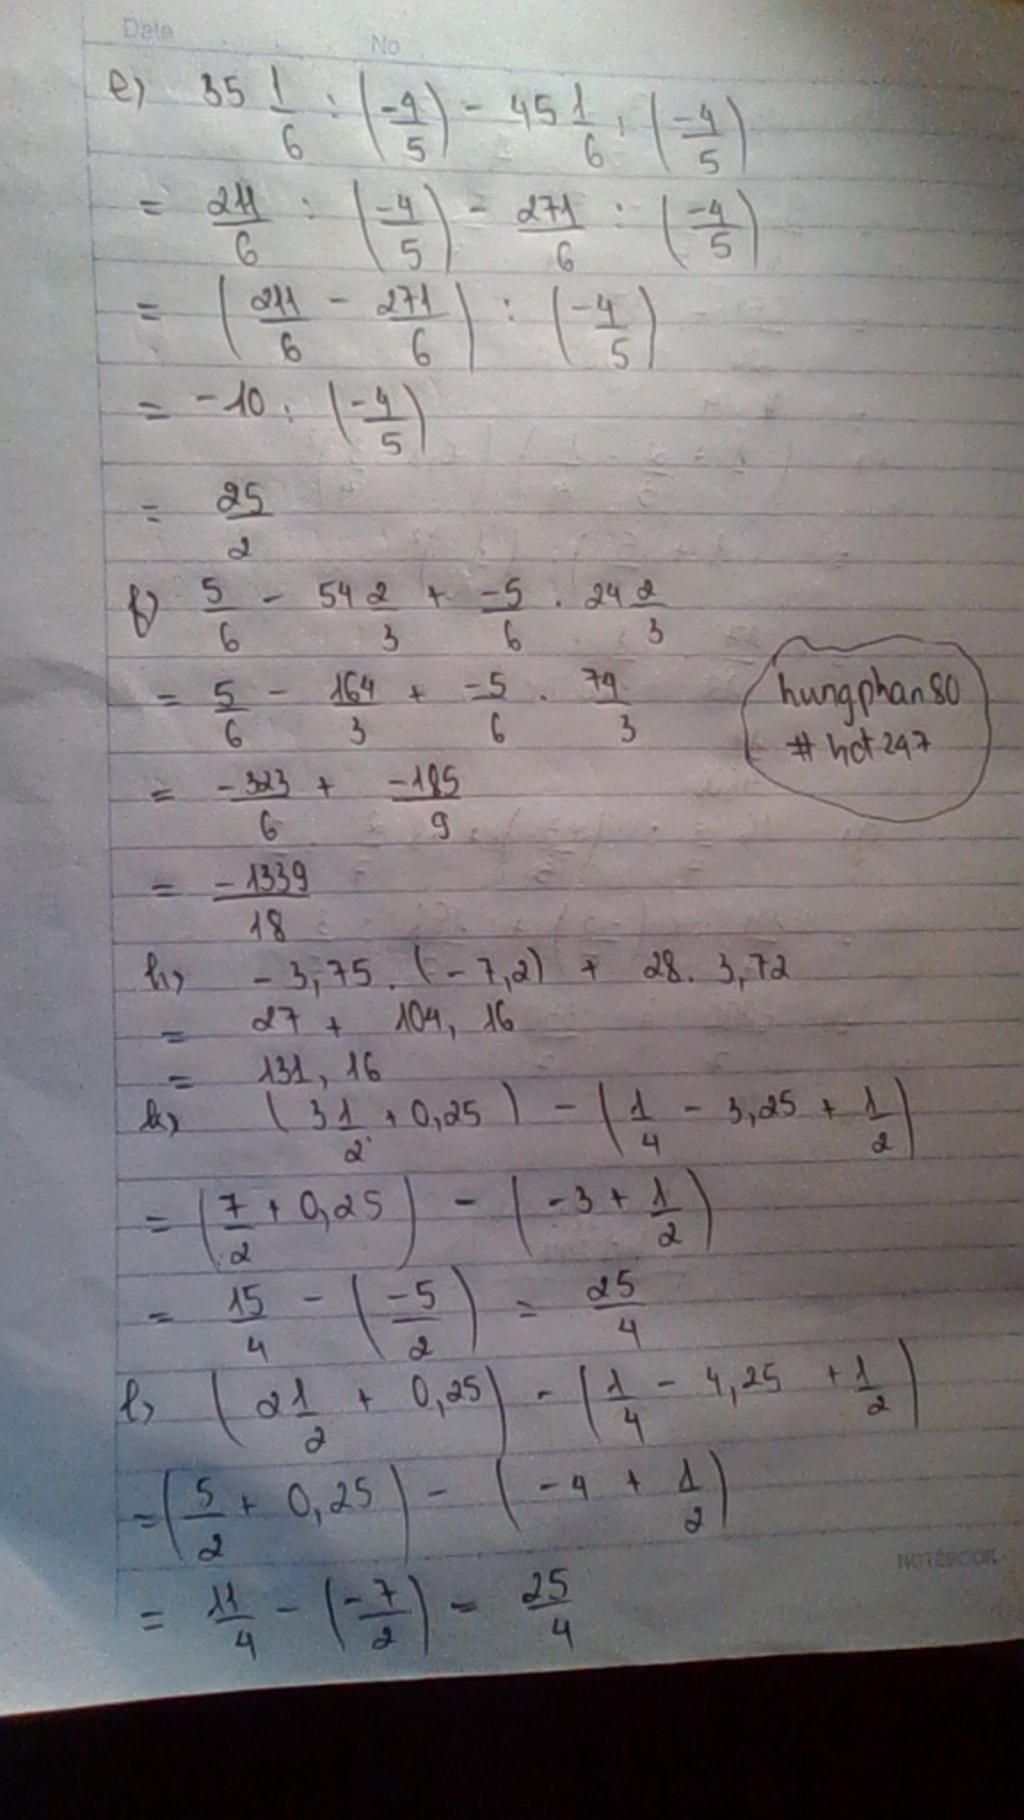 Date No
e) 35 1/6 : (-4/5) - 45 1/6 : (-4/5)
= 211/6 : (-4/5) - 271/6 : (-4/5)
= (211/6 - 271/6) : (-4/5)
= -10 : (-4/5)
= 25/2
f) 5/6 - 54 2/3 + -5/6 . 24 2/3
= 5/6 - 164/3 + -5/6 . 74/3
hungphan80
# hot247
= -323/6 + -185/9
= -1339/18
h) -3,75 . (-7,2) + 28 . 3,72
= 27 + 104,16
= 131,16
k) (3 1/2 + 0,25) - (1/4 - 3,25 + 1/2)
= (7/2 + 0,25) - (-3 + 1/2)
= 15/4 - (-5/2) = 25/4
l) (2 1/2 + 0,25) - (1/4 - 4,25 + 1/2)
= (5/2 + 0,25) - (-4 + 1/2)
NOTEBOOK
= 11/4 - (-7/2) = 25/4